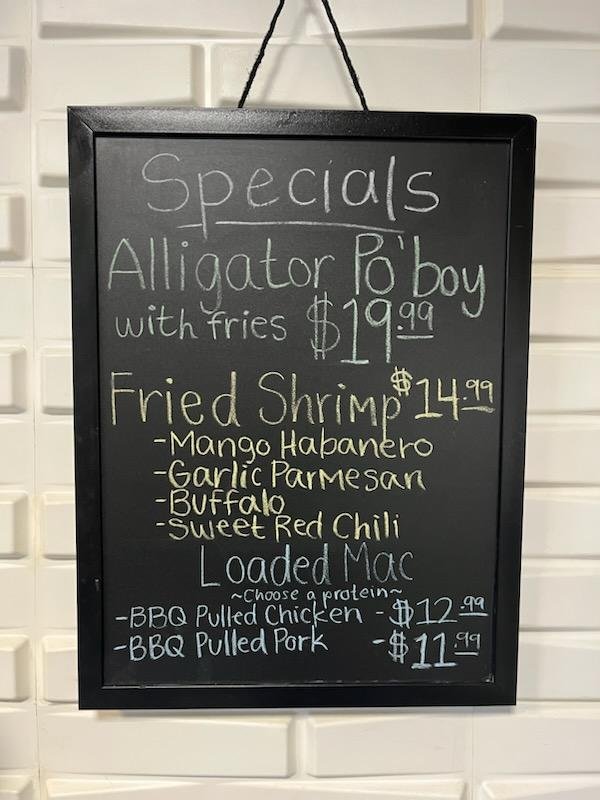 Specials
Alligator Po'boy
with fries $19.99
Fried Shrimp $14.99
-Mango Habanero
-Garlic Parmesan
-Buffalo
-Sweet Red Chili
Loaded Mac
~Choose a protein~
-BBQ Pulled Chicken -$12.99
-BBQ Pulled Pork -$11.99